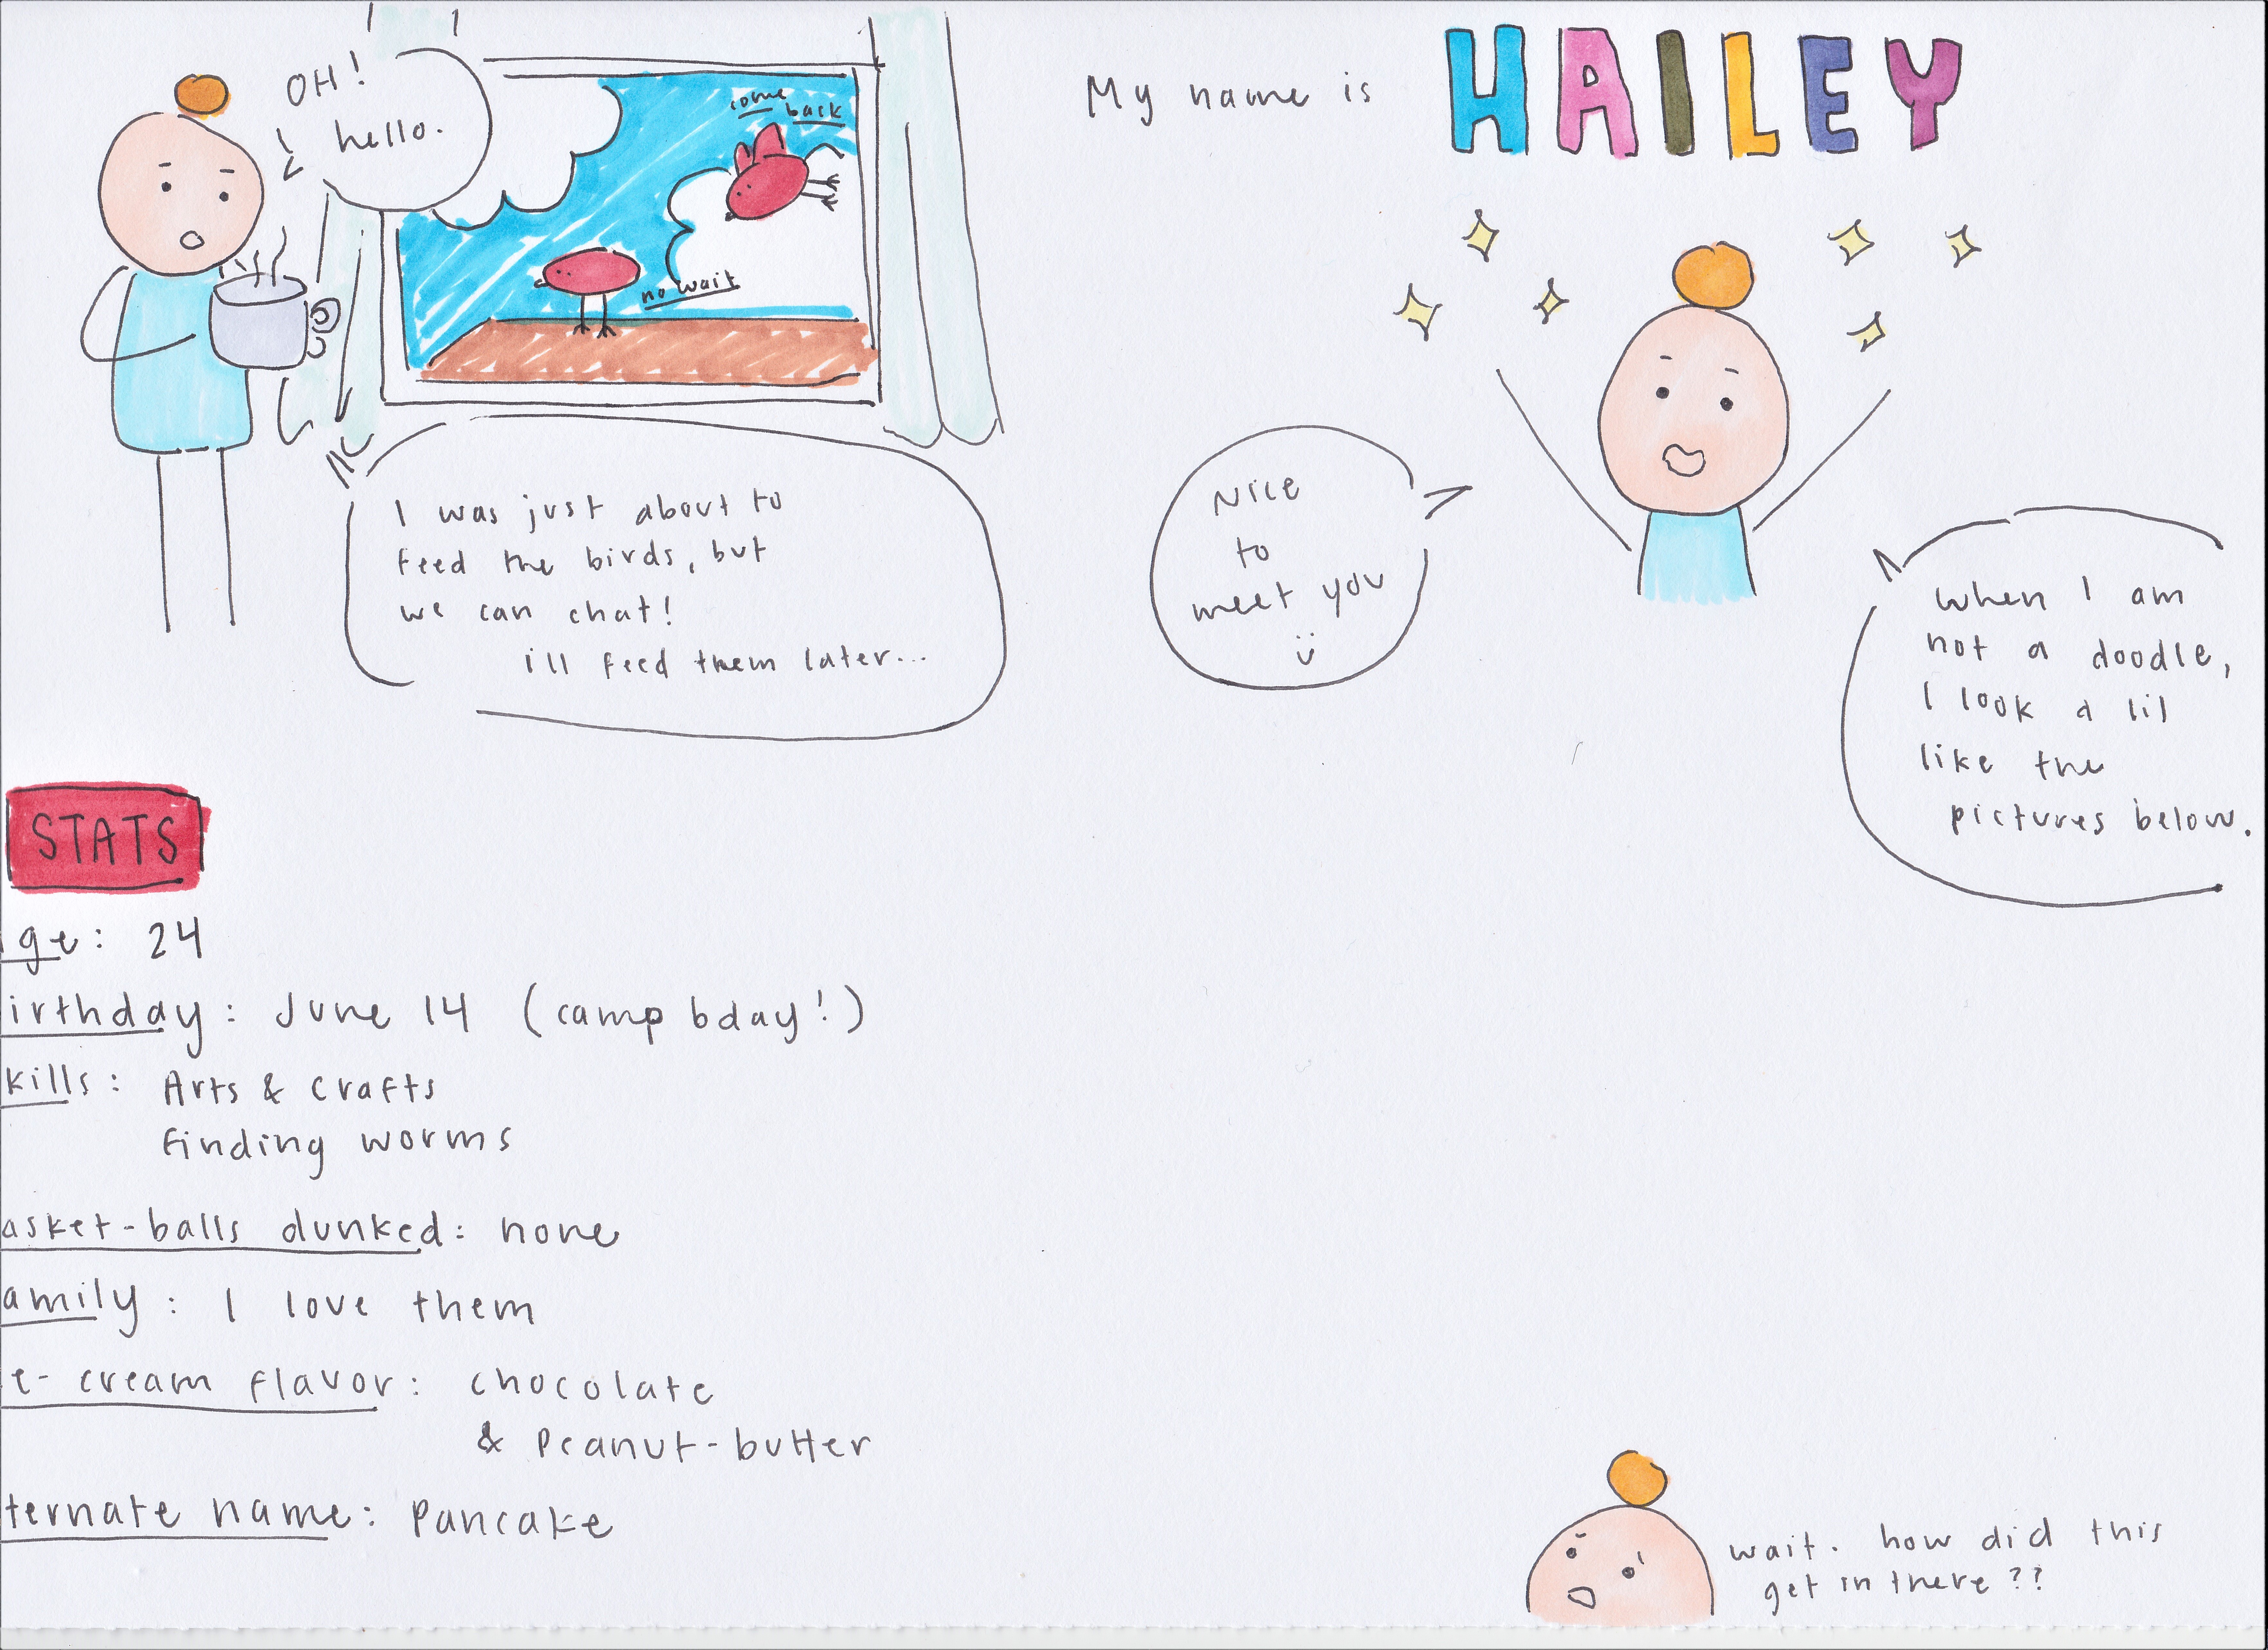 OH!
hello.
come
back
no wait
I was just about to
feed the birds, but
we can chat!
ill feed them later...
My name is HAILEY
Nice
to
meet you
when I am
not a doodle,
I look a lil
like the
pictures below.
STATS
ge: 24
irthday: June 14 (camp bday!)
kills: Arts & crafts
finding worms
asket-balls dunked: none
amily: I love them
e-cream flavor: chocolate
& Peanut-butter
ternate name: Pancake
wait. how did this
get in there??